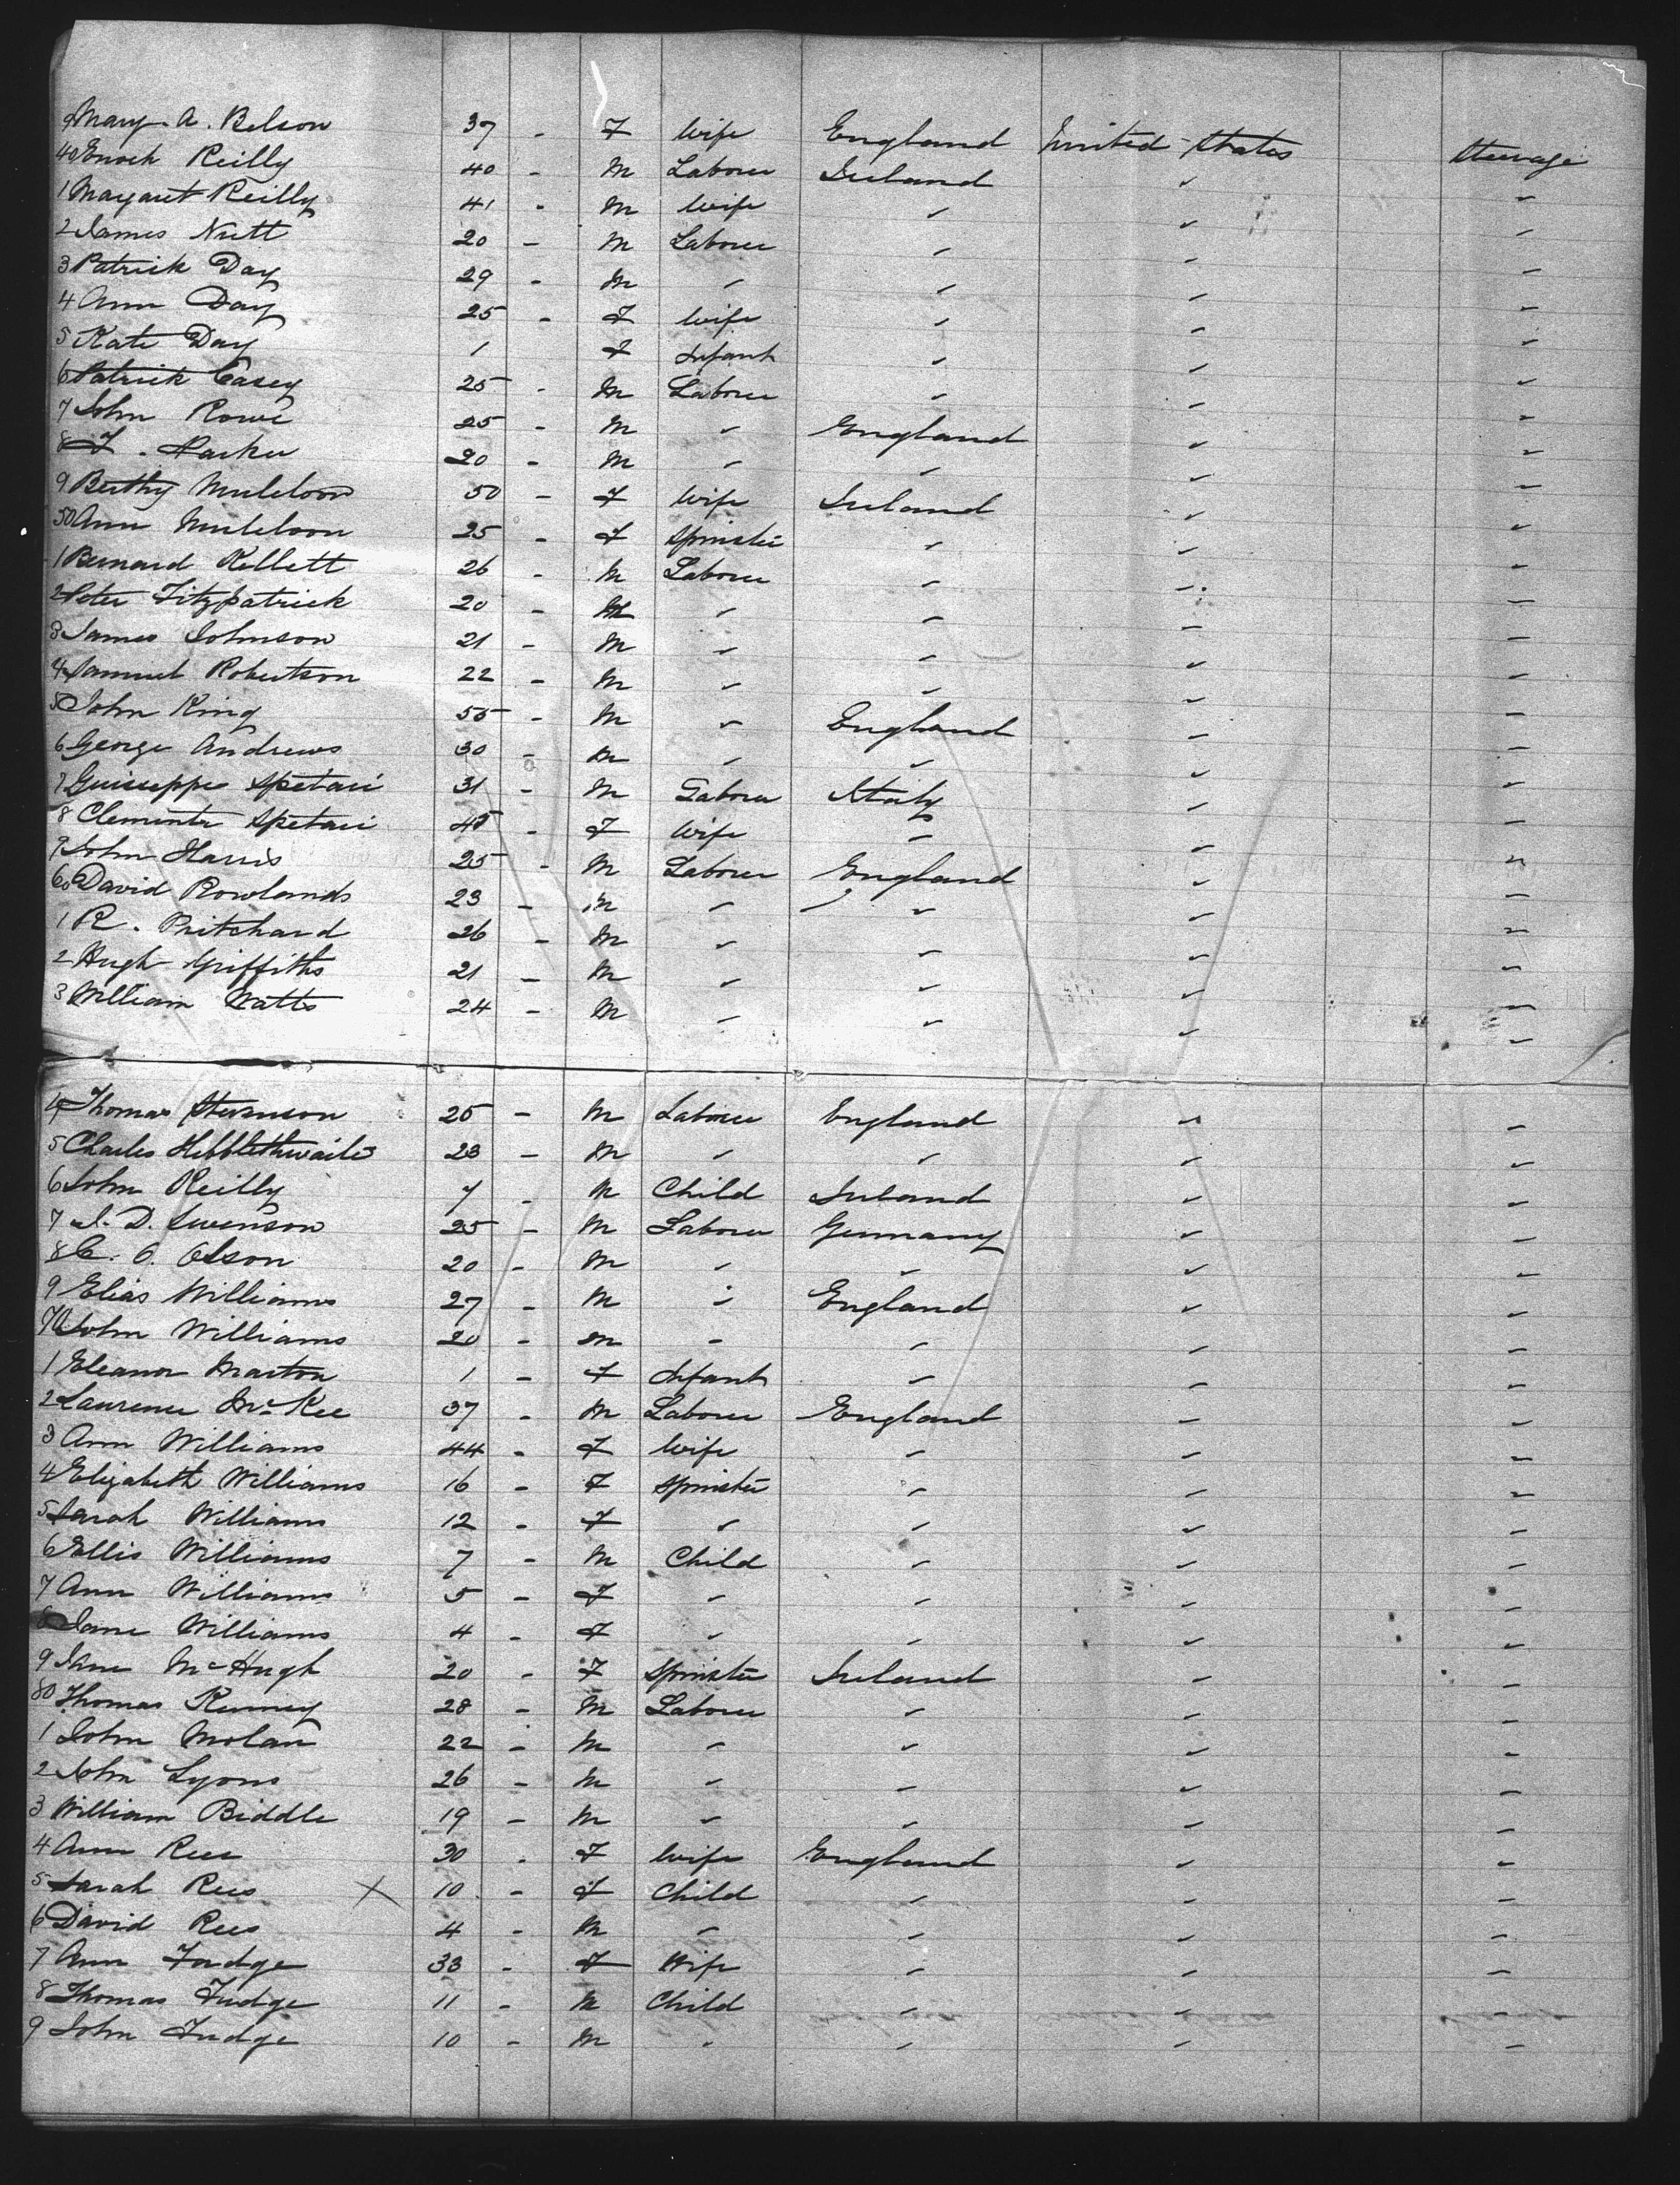 9 Mary. A. Belson 37 - F Wife England United States Steerage
40 Enoch Reilly 40 - M Laborer Ireland " "
1 Margaret Reilly 41 - M Wife " " "
2 James Nutt 20 - M Laborer " " "
3 Patrick Day 29 - M " " " "
4 Ann Day 25 - F Wife " " "
5 Kate Day 1 F Infant " " "
6 Patrick Casey 25 - M Laborer " " "
7 John Rowe 25 - M " England " "
8 F. Parker 20 - M " " " "
9 Muldoon 50 - F Wife Ireland " "
50 Ann Muldoon 25 - F Spinster " " "
1 Bernard Kellett 26 - M Laborer " " "
2 Peter Fitzpatrick 20 - M " " " "
3 James Johnson 21 - M " " " "
4 Samuel Robertson 22 - M " " " "
5 John King 55 - M " England " "
6 George Andrews 30 - M " " " "
7 Guiseppe Spetari 31 - M Laborer Italy " "
8 Clemente Spetari 45 - F Wife " " "
9 John Harris 25 - M Laborer England " "
60 David Rowlands 23 - M " " " "
1 R. Pritchard 26 - M " " " "
2 Hugh Griffiths 21 - M " " " "
3 William Watts 24 - M " " " "
4 Thomas Stevenson 25 - M Laborer England " "
5 Charles Hebblethwaite 23 - M " " " "
6 John Reilly 7 - M Child Ireland " "
7 J. D. Swenson 25 - M Laborer Germany " "
8 C. O. Olsson 20 - M " " " "
9 Elias Williams 27 - M " England " "
70 John Williams 20 - M " " " "
1 Eleanor Marton 1 - F Infant " " "
2 Laurence McKee 37 - M Laborer England " "
3 Ann Williams 44 - F Wife " " "
4 Elizabeth Williams 16 - F Spinster " " "
5 Sarah Williams 12 - F " " " "
6 Ellis Williams 7 - M Child " " "
7 Ann Williams 5 - F " " " "
8 Jane Williams 4 - F " " " "
9 Jane McHugh 20 - F Spinster Ireland " "
80 Thomas Kenney 28 - M Laborer " " "
1 John Molan 22 - M " " " "
2 John Lyons 26 - M " " " "
3 William Biddle 19 - M " " " "
4 Ann Rees 30 - F Wife England " "
5 Sarah Rees X 10 - F Child " " "
6 David Rees 4 - M " " " "
7 Ann Fudge 33 - F Wife " " "
8 Thomas Fudge 11 - M Child " " "
9 John Fudge 10 - M " " " "